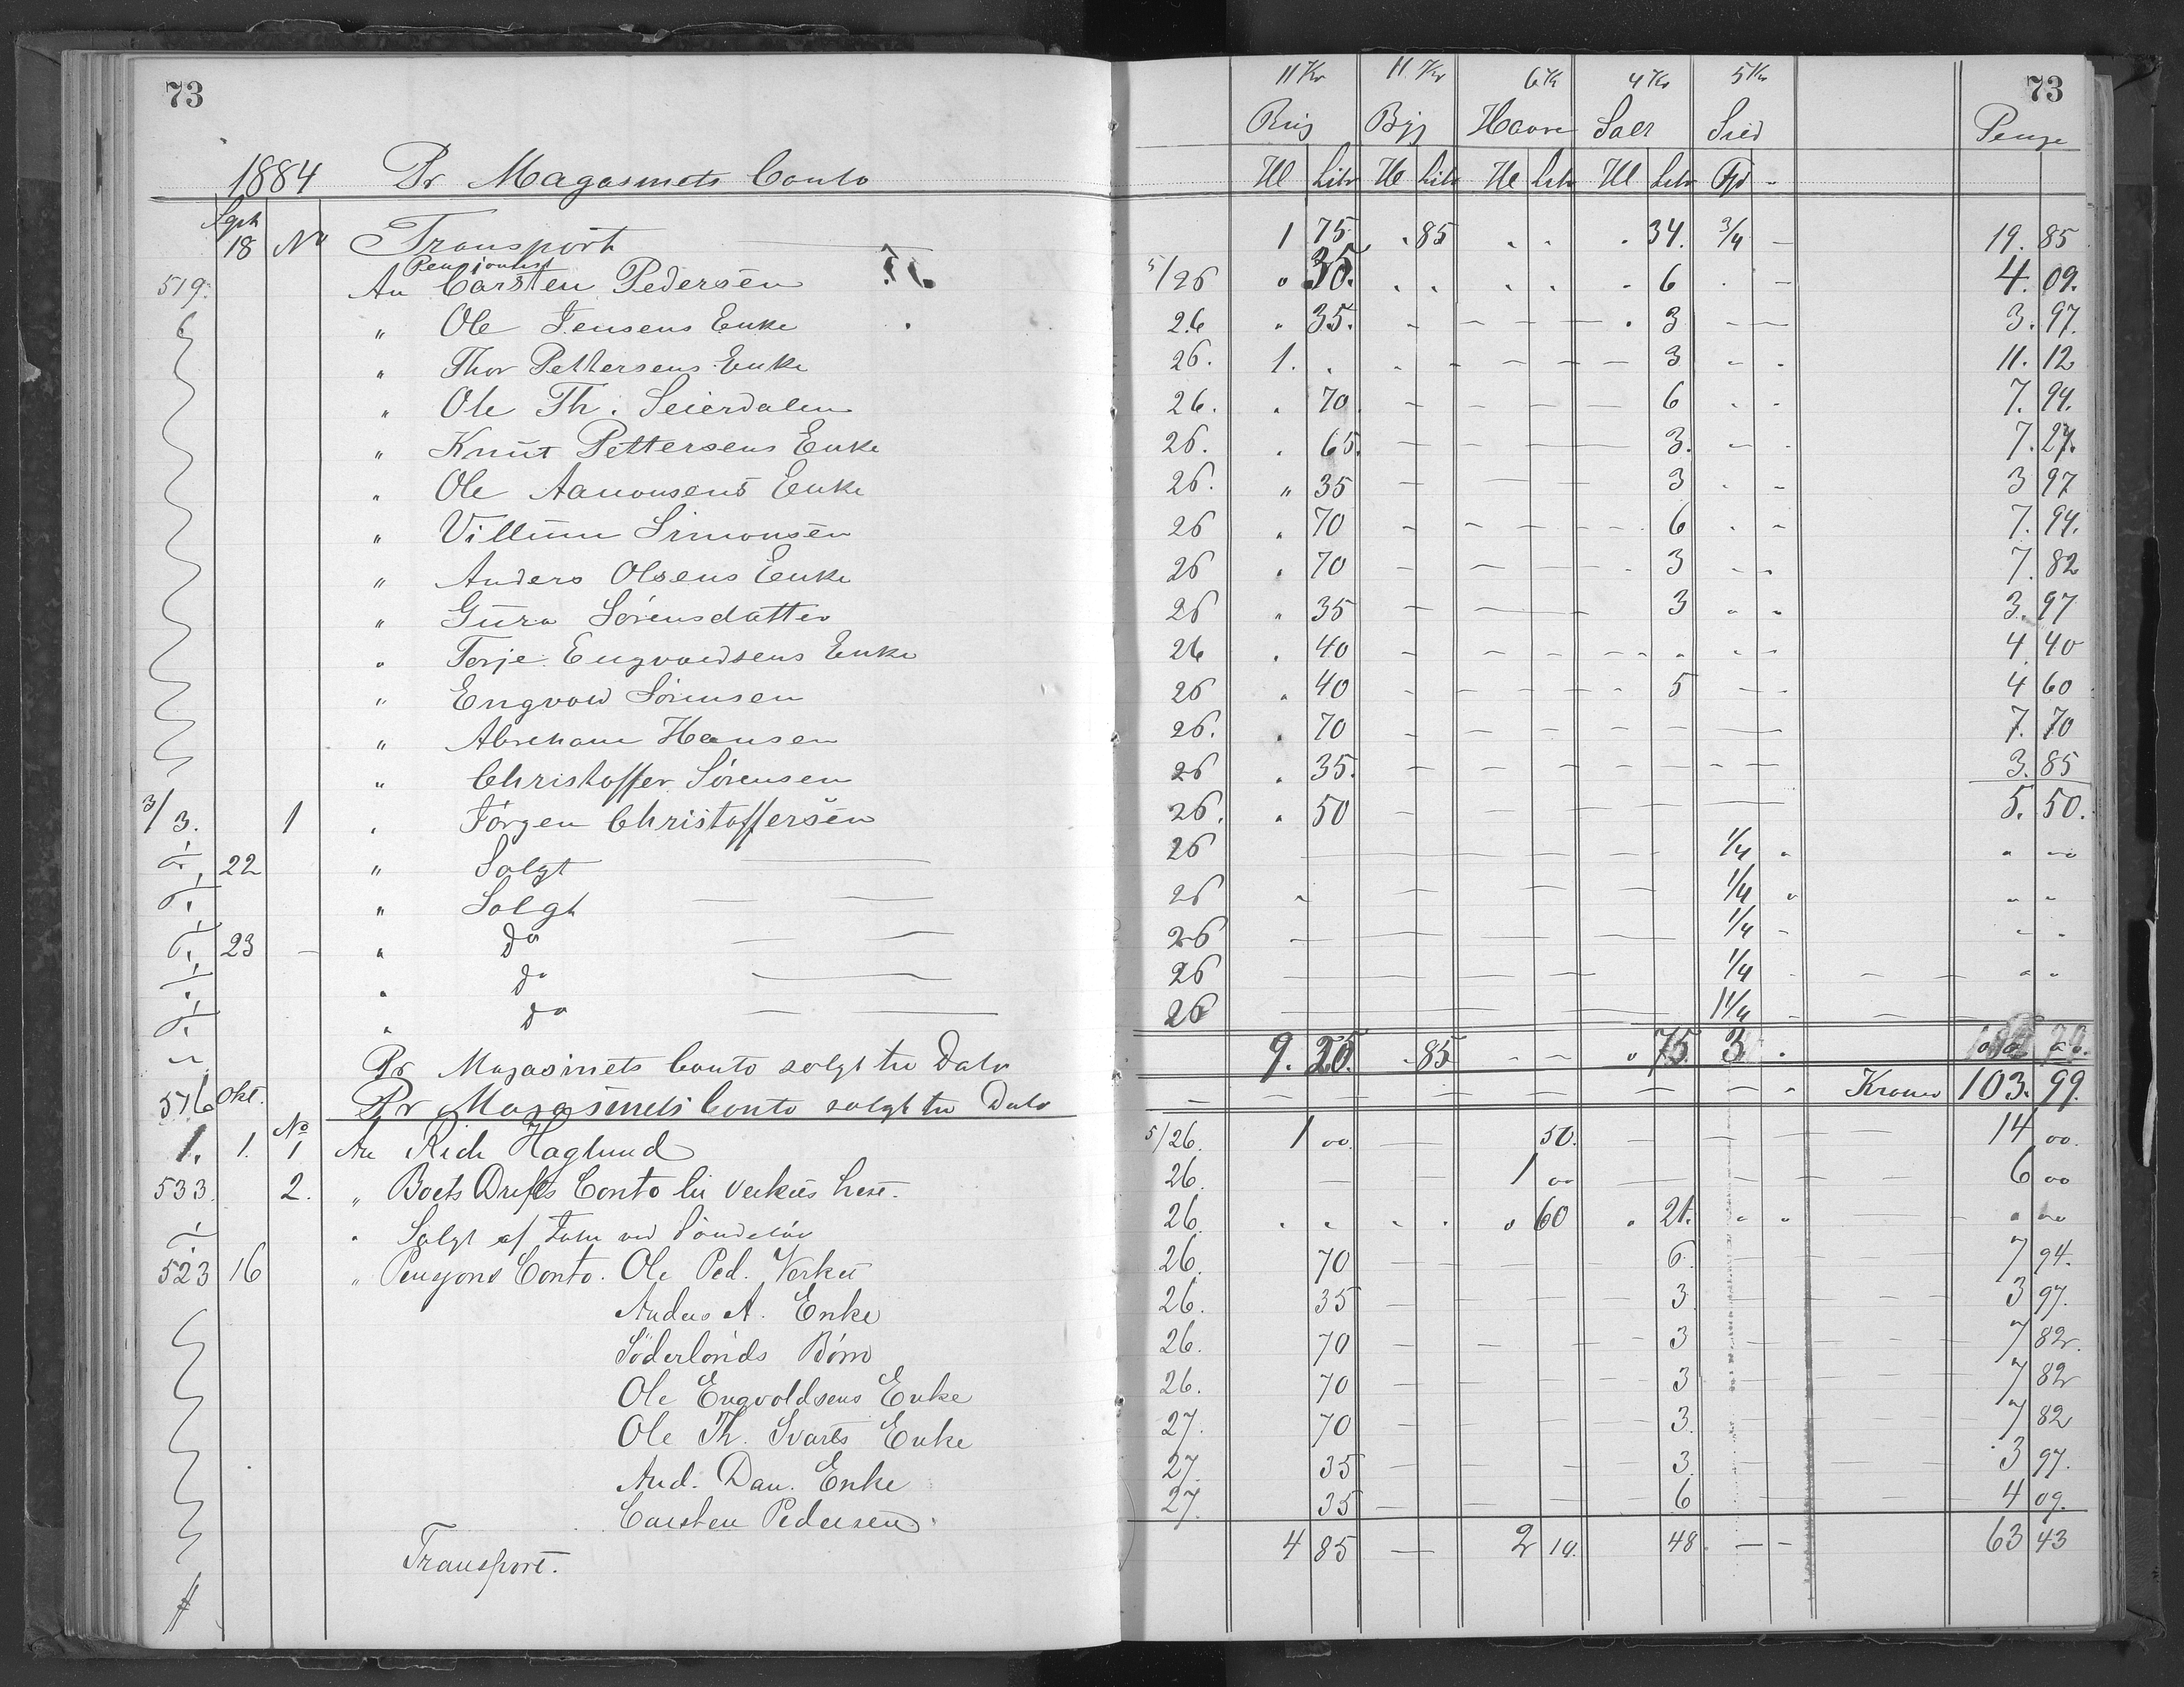 73
1884 Pr Magasinets Conto
11 Kr 11 Kr 6 Kr 4 Kr 5 Kr 73
Rug Byg Havre Salt Sild Penge
Hl Litr Hl Litr Hl Litr Hl Litr Fjd
Sept
18 No Transport 1 75 . 85 . . . 34. 3/4 - 19. 85
Pensionist
519. An Carsten Pedersen 5/26 " 35. . . . . - 6 . - 4. 09.
" Ole Jensens Enke 26 " 35. - - - - . 3 - - 3. 97.
" Thor Pettersens Enke 26. 1. . . - - - - 3 - . 11. 12
" Ole Th. Seierdalen 26. . 70. - - - - 6 . . 7. 94.
" Knut Pettersens Enke 26. . 65. - - - 3. - - 7. 27.
" Ole Aanonsens Enke 26. " 35 - - - 3 . - 3 97
" Villum Simonsen 26 . 70 - - - - - 6 . - 7. 94.
" Anders Olsens Enke 26 . 70 - - - . 3 - . 7. 82
" Guro Sørensdatter 26 " 35 - - - 3 . . 3. 97
" Terje Engvoldsens Enke 26 . 40 - - - - - . . - 4. 40
" Engvow Sørensen 26 . 40 - - - - . 5 - - 4 60
" Abreham Hansen 26. . 70 - - - - - - 7. 70
" Christoffer Sørensen 26 . 35. - - - - - - - 3. 85
3/3. 1 " Jörgen Christoffersen 26. . 50 - - - - - 5. 50.
22 " Solgt 26 - - - - 1/4 . " "
" Solgt 26 " - - - 1/4 " " "
23 - " do 26 - - - - 1/4 - " "
" do 26 - - - - 1/4 - - - " "
" do 26 - - - - 1 1/4 - - -
Pr Magasinets Conto solgt til Dato 9. 20. . 85 - - . 75. 3 .
516 Okt. Pr Magasinets Conto solgt til Dato - - - - - - - - . Kroner 103. 99.
No
1. 1. 1 An Rich Haglund 5/26. 1 00. - 50. - - - 14 00.
533. 2. " Boets Drifts Conto til Verkets heste. 26. - - 1 00 - - - 6 00
" Solgt af Tolm ved Söndeløv 26. . . . . " 60 . 21. . . - " "
523 16 " Pensjons Conto. Ole Ped. Verket 26. 70 - - - 6. - - - 7 94.
Anders A. Enke 26. 35 - - - 3. - - - 3 97.
Söderlonds Börn 26. 70 - - - 3 - - - 7 82.
Ole Engvoldsens Enke 26. 70 - - - 3 - - - 7 82
Ole Th. Svarts Enke 27. 70 - - - 3. - - - 7 82
And. Dan. Enke 27. 35 - - - 3. - - - 3 97.
Carsten Pedersen. 27. 35 - - - 6 - - - 4 09.
Transport. 4 85 - 2 10. 48. - - 63 43